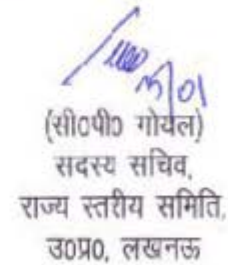 (सी0पी0 गोयल)
सदस्य सचिव,
राज्य स्तरीय समिति,
उ0प्र0, लखनऊ